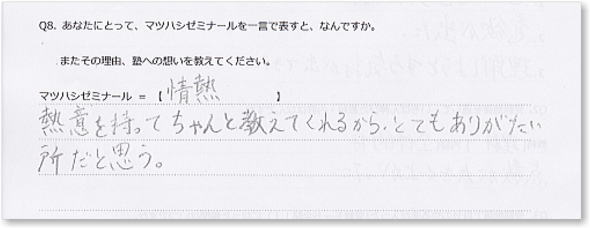 Q8. あなたにとって、マツハシゼミナールを一言で表すと、なんですか。
またその理由、塾への想いを教えてください。
マツハシゼミナール = 【 情熱 】
熱意を持ってちゃんと教えてくれるから、とてもありがたい
所だと思う。